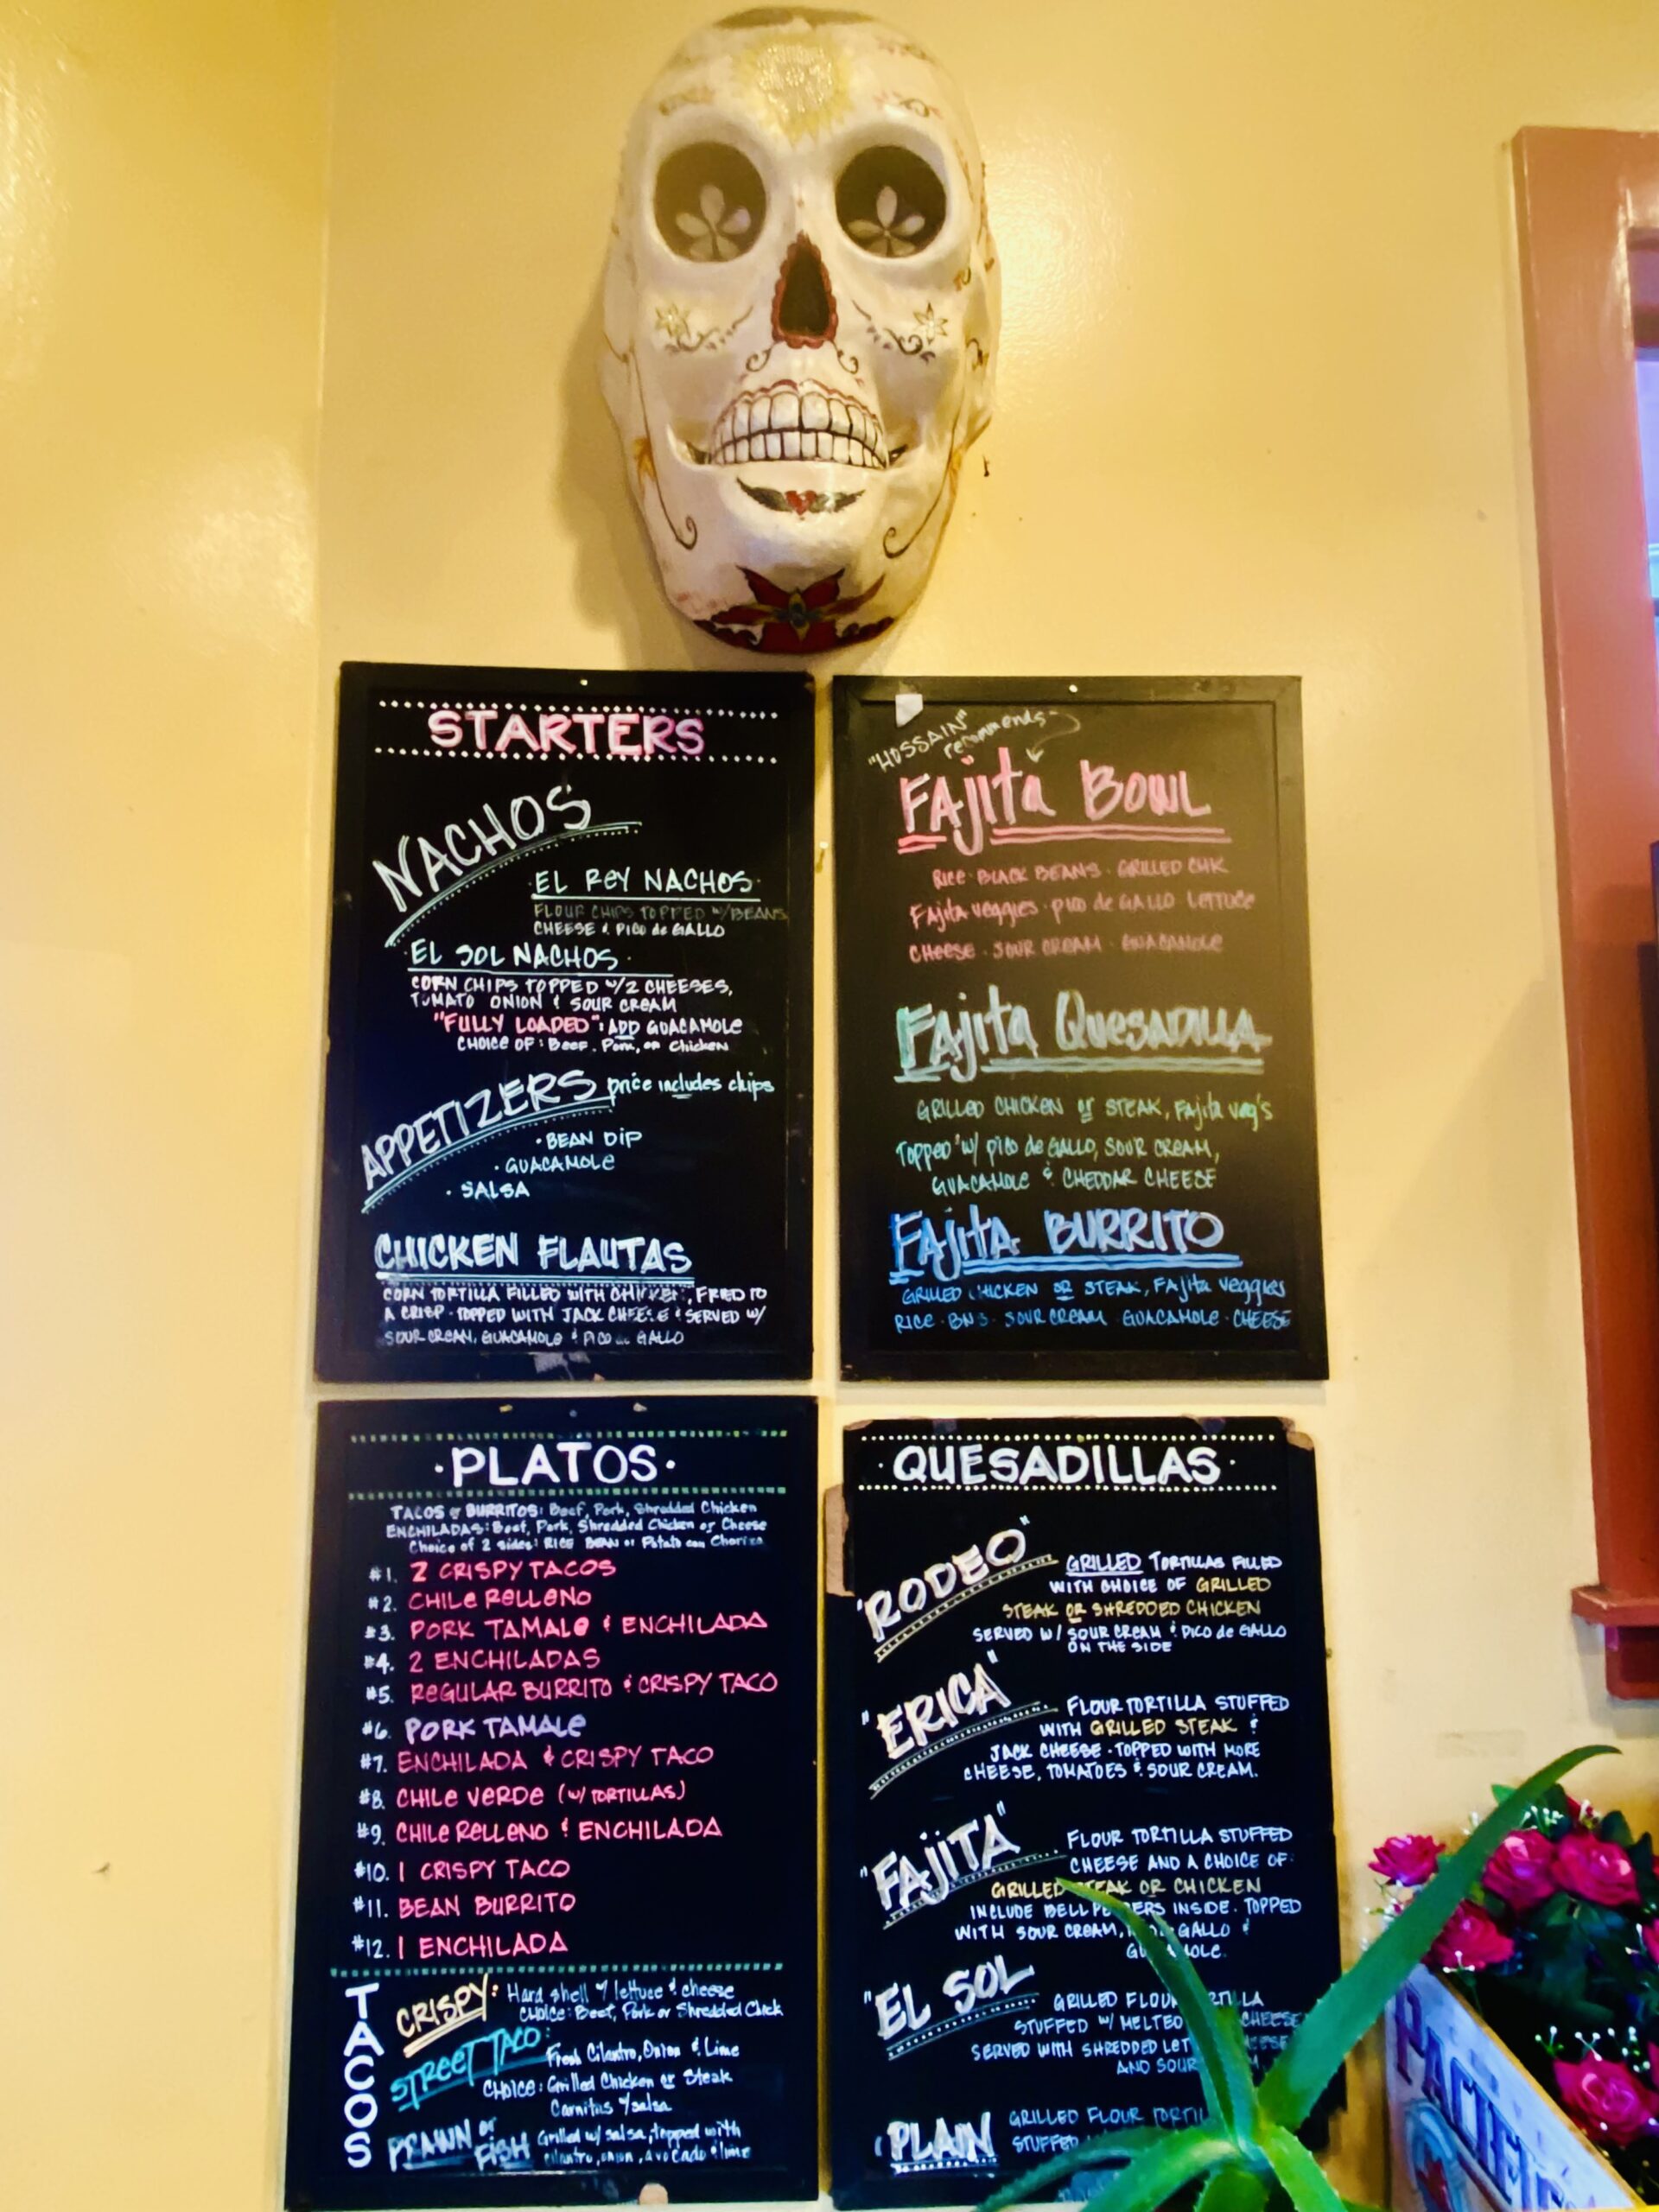 STARTERS
NACHOS
EL REY NACHOS
FLOUR CHIPS TOPPED W/BEANS
CHEESE & PICO de GALLO
EL SOL NACHOS
CORN CHIPS TOPPED W/2 CHEESES,
TOMATO ONION & SOUR CREAM
"FULLY LOADED": ADD GUACAMOLE
CHOICE OF: Beef, Pork, or Chicken
APPETIZERS price includes chips
• BEAN DIP
• GUACAMOLE
• SALSA
CHICKEN FLAUTAS
CORN TORTILLA FILLED WITH CHICKEN, FRIED TO
A CRISP • TOPPED WITH JACK CHEESE & SERVED W/
SOUR CREAM, GUACAMOLE & PICO de GALLO
"HOSSAIN"
recommends
FAjita BOWL
RICE • BLACK BEANS • GRILLED CHK
Fajita veggies • pico de GALLO LETTUCE
CHEESE • SOUR CREAM • GUACAMOLE
FAjita QUESADILLA
GRILLED CHICKEN or STEAK, Fajita veg's
Topped w/ pico de GALLO, SOUR CREAM,
GUACAMOLE & CHEDDAR CHEESE
FAjitA BURRITO
GRILLED CHICKEN OR STEAK, FAjita veggies
RICE • BNS • SOUR CREAM • GUACAMOLE • CHEESE
• PLATOS •
TACOS or BURRITOS: Beef, Pork, Shredded Chicken
ENCHILADAS: Beef, Pork, Shredded Chicken or Cheese
Choice of 2 sides: RICE BEAN or Potato con Chorizo
#1. 2 CRISPY TACOS
#2. CHILE RELLENO
#3. PORK TAMALE & ENCHILADA
#4. 2 ENCHILADAS
#5. REGULAR BURRITO & CRISPY TACO
#6. PORK TAMALE
#7. ENCHILADA & CRISPY TACO
#8. CHILE VERDE (W/ TORTILLAS)
#9. CHILE RELLENO & ENCHILADA
#10. 1 CRISPY TACO
#11. BEAN BURRITO
#12. 1 ENCHILADA
TACOS
CRISPY: Hard shell w/ lettuce & cheese
CHOICE: Beef, Pork or Shredded Chick
STREET TACO:
Fresh Cilantro, Onion & Lime
CHOICE: Grilled Chicken or Steak
Carnitas y/salsa
PRAWN or FISH
Grilled w/ salsa, topped with
cilantro, onion, avocado & lime
• QUESADILLAS •
"RODEO"
GRILLED TORTILLAS FILLED
WITH CHOICE OF GRILLED
STEAK OR SHREDDED CHICKEN
SERVED W/ SOUR CREAM & PICO de GALLO
ON THE SIDE
"ERICA"
FLOUR TORTILLA STUFFED
WITH GRILLED STEAK &
JACK CHEESE • TOPPED WITH MORE
CHEESE, TOMATOES & SOUR CREAM.
"FAJITA"
FLOUR TORTILLA STUFFED
CHEESE AND A CHOICE OF:
GRILLED STEAK OR CHICKEN
INCLUDE BELL PEPPERS INSIDE. TOPPED
WITH SOUR CREAM, GALLO &
"EL SOL
GRILLED FLOUR TORTILLA
STUFFED W/ MELTED CHEESE
SERVED WITH SHREDDED CHEESE
AND SOUR
"PLAIN
GRILLED FLOUR
STUFFED
PACIFICO